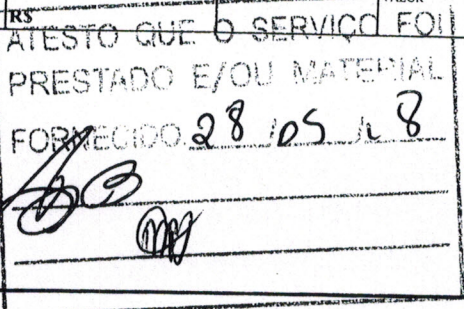 R$
ATESTO QUE O SERVIÇO FOI
PRESTADO E/OU MATERIAL
FORNECIDO 28/05/18